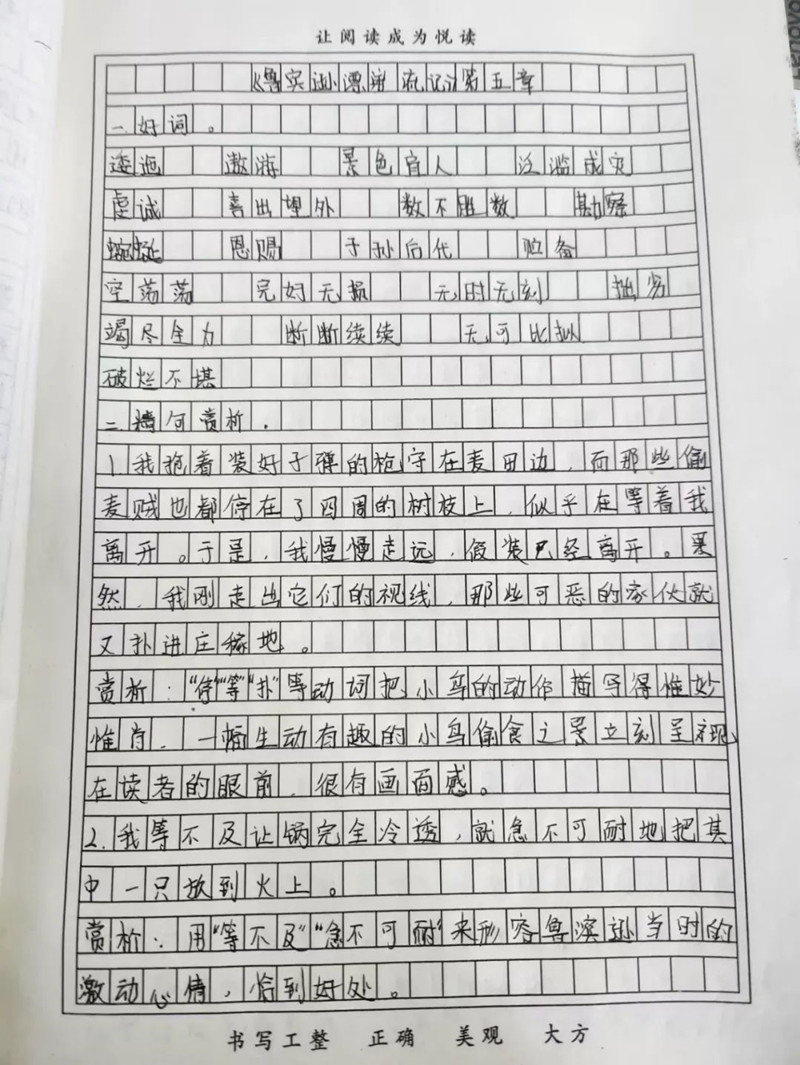 让阅读成为悦读
《鲁宾逊漂流记》第五章
一.好词。
逶迤 遨游 景色宜人 泛滥成灾
虔诚 喜出望外 数不胜数 勘察
蜿蜒 恩赐 子孙后代 贮备
空荡荡 完好无损 无时无刻 拙劣
竭尽全力 断断续续 无可比拟
破烂不堪
二精句赏析.
1.我抱着装好子弹的枪守在麦田边,而那些偷
麦贼也都停在了四周的树枝上,似乎在等着我
离开。于是,我慢慢走远,假装已经离开。果
然,我刚走出它们的视线,那些可恶的家伙就
又扑进庄稼地。
赏析:“停”“等”“扑”等动词把小鸟的动作描写得惟妙
惟肖,一幅生动有趣的小鸟偷食之景立刻呈现
在读者的眼前,很有画面感。
2.我等不及让锅完全冷透,就急不可耐地把其
中一只放到火上。
赏析:用“等不及”“急不可耐”来形容鲁滨逊当时的
激动心情,恰到好处。
书写工整 正确 美观 大方